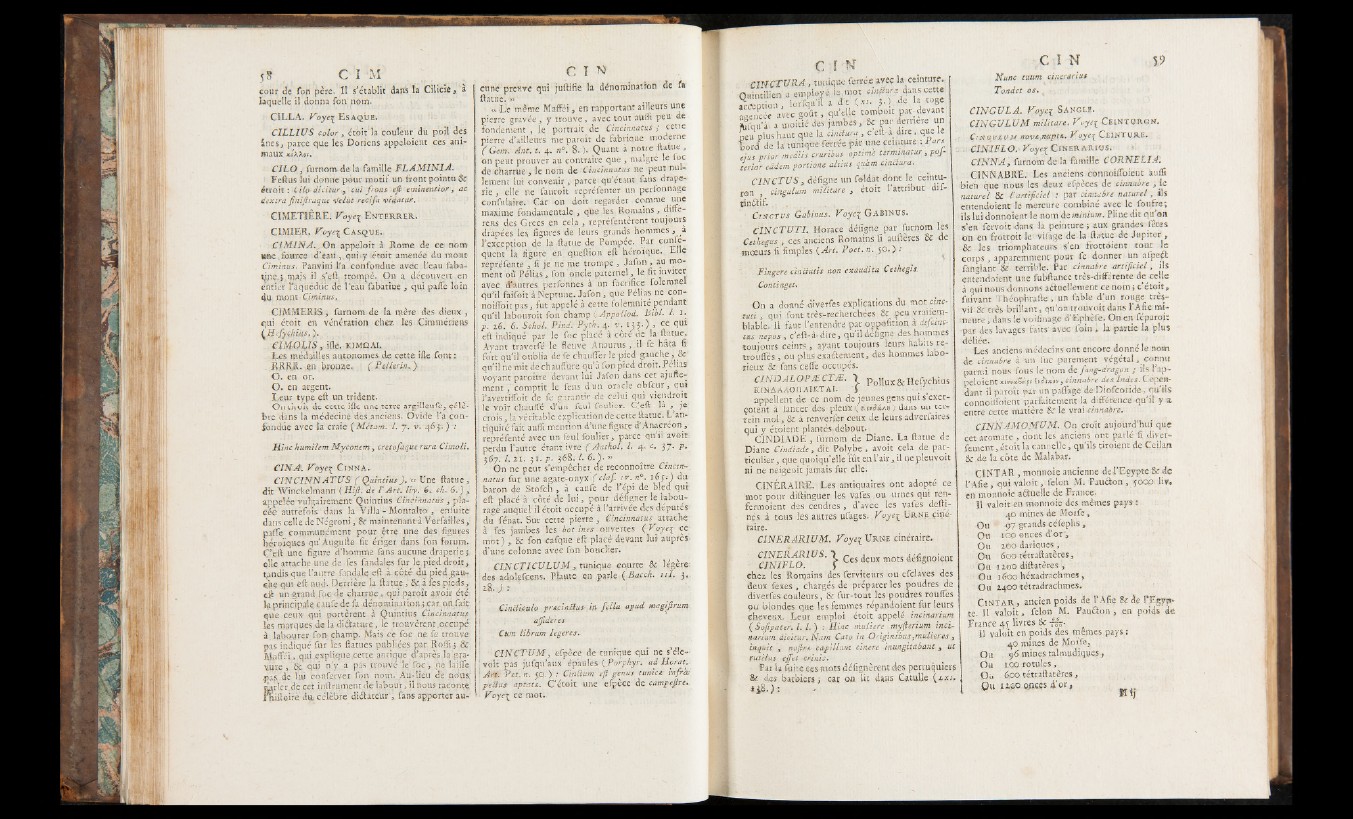 58 CIM
cour de ſon père. Il s'établit dans la Cilicie, à
laquelle il donna ſon nom.
CILLA. Voyez ESAQUE.
CILLIUS color, étoit la couleur du poil des
ânes, parce que les Doriens appeloient ces ani-
maux κιλλοι.
CILO, ſurnom de la famille FLAMINIA.
Feſtus lui donne pour motif un front pointu &
étroit : Cilo dicitur, cui frons eſt eminentior, ac
dextra ſiniſtraque velut reciſa videtur.
CIMETIÈRE. Voyez ENTERRER.
CIMIER. Voyez CASQUE.
CIMINA. On appeloit à Rome de ce nom
une ſource d'eau, qui y étoit amenée du mont
Ciminus. Panvini l'a confondue avec l'eau ſaba-
tine ; mais il s'eſt trompé. On a découvert en
entier l'aqueduc de l'eau ſabatine, qui paſſe loin
du mont Ciminus.
CIMMERIS, ſurnom de la mère des dieux,
qui étoit en vénération chez les Cimmériens
(Héſychius.).
CIMOLIS, iſle. ΚΙΜΩΛΙ.
Les médailles autonomes de cette iſle ſont :
RRRR. en bronze. (Pellerin.)
O. en or.
O. en argent.
Leur type eſt un trident.
On tiroit de cette iſle une terre argilleuſe, célè-
bre dans la médecine des anciens. Ovide l'a con-
fondue avec la craie (Métam. l. 7. v. 463.) :
Hinc humilem Myconem, cretoſaque rura Cimoli.
CINA. Voyez CINNA.
CINCINNATUS (Quintius). « Une ſtatue,
dit Winckelmann (Hiſt. de l'Art. liv. 6. ch. 6.),
appelée vulgairement Quintius Cincinnatus, pla-
cée autrefois dans la Villa-Montalto, enſuite
dans celle de Négroni, & maintenant à Verſailles,
paſſe communément pour être une des figures
héroïques qu'Auguſte fit ériger dans ſon forum.
C'eſt une figure d'homme ſans aucune draperie ;
elle attache une de ſes ſandales ſur le pied droit,
tandis que l'autre ſandale eſt à côté du pied gau-
che qui eſt nud. Derrière la ſtatue, & à ſes pieds,
eſt un grand ſoc de charrue, qui paroît avoir été
la principale cauſe de ſa dénomination ; car on ſait
que ceux qui portèrent à Quintius Cincinnatus
les marques de la dictature, le trouvèrent occupé
à labourer ſon champ. Mais ce ſoc ne ſe trouve
pas indiqué ſur les ſtatues publiées par Roſſi ; &
Maffei, qui explique cette antique d'après la gra-
vure, & qui n'y a pas trouvé le ſoc, ne laiſſe
pas de lui conſerver ſon nom. Au-lieu de nous
parler de cet inſtrument de labour, il nous raconte
l'hiſtoire du célèbre dictateur, ſans apporter au-
CIN
cune preuve qui juſtifie la dénomination de ſa
ſtatue. »
« Le même Maffei, en rapportant ailleurs une
pierre gravée, y trouve, avec tout auſſi peu de
fondement, le portrait de Cincinnatus ; cette
pierre d'ailleurs me paroît de fabrique moderne
(Gem. Ant. t. 4. n°. 8.). Quant à notre ſtatue,
on peut prouver au contraire que, malgré le ſoc
de charrue, le nom de Cincinnatus ne peut nul-
lement lui convenir, parce qu'étant ſans drape-
rie, elle ne ſauroit repréſenter un perſonnage
conſulaire. Car on doit regarder comme une
maxime fondamentale, que les Romains, diffé-
rens des Grecs en cela, repréſentèrent toujours
drapées les figures de leurs grands hommes, à
l'exception de la ſtatue de Pompée. Par conſé-
quent la figure en queſtion eſt héroïque. Elle
repréſente, ſi je ne me trompe, Jaſon, au mo-
ment où Pélias, ſon oncle paternel, le fit inviter
avec d'autres perſonnes à un ſacrifice ſolemnel
qu'il faiſoit à Neptune. Jaſon, que Pélias ne con-
noiſſoit pas, fut appelé à cette ſolemnité pendant
qu'il labouroit ſon champ (Appollod. Bibl. l. 1.
p. 26. 6. Schol. Pind. Pyth. 4. v. 133.), ce qui
eſt indiqué par le ſoc placé à côté de la ſtatue.
Ayant traverſé le fleuve Anaurus, il ſe hâta ſi
fort qu'il oublia de ſe chauſſer le pied gauche, &
qu'il ne mit de chauſſure qu'à ſon pied droit. Pélias
voyant paroître devant lui Jaſon dans cet ajuſte-
ment, comprit le ſens d'un oracle obſcur, qui
l'avertiſſoit de ſe garantir de celui qui viendroit
le voir chauſſé d'un ſeul ſoulier. C'eſt là, je
crois, la véritable explication de cette ſtatue. L'an-
tiquité fait auſſi mention d'une figure d'Anacréon,
repréſenté avec un ſeul ſoulier, parce qu'il avoit
perdu l'autre étant ivre (Anthol. l. 4. c. 37. p.
367. l. 21. 31. p. 368. l. 6.). »
On ne peut s'empêcher de reconnoître Cincin-
natus ſur une agate-onyx (claſ. IV. n°. 165.) du
baron de Stoſch, à cauſe de l'épi de bled qui
eſt placé à côté de lui, pour déſigner le labou-
rage auquel il étoit occupé à l'arrivée des députés
du ſénat. Sur cette pierre, Cincinnatus attache
à ſes jambes les bottines ouvertes (Voyez ce
mot), & ſon caſque eſt placé devant lui auprès
d'une colonne avec ſon bouclier.
CINCTICULUM, tunique courte & légère
des adoleſcens. Plaute en parle (Bacch. III. 3.
28.) :
Cincticulo præcinctus in ſella apud magiſtrum
aſſideres
Cum librum legeres.
CINCTUM, eſpèce de tunique qui ne s'éle-
voit pas juſqu'aux épaules (Porphyr. ad Horat.
Art. Poet. n. 50.) : Cinctum eſt genus tunicæ infra
pectus aptatæ. C'étoit une eſpèce de campeſtre.
Voyez ce mot.
CIN
CINCTURA, tunique ſerrée avec la ceinture.
Quintilien a employé le mot cinctura dans cette
acception, lorſqu'il a dit (XI. 3.) de la toge
agencée avec goût, qu'elle tomboit par-devant
juſqu'à la moitié des jambes, & par derrière un
peu plus haut que la cinctura, c'eſt-à-dire, que le
bord de la tunique ſerrée par une ceinture : Pars
ejus prior mediis cruribus optimè terminatur, poſ-
terior eâdem portione altius quàm cinctura.
CINCTUS, déſigne un ſoldat dont le ceintu-
ron, cingulum militare, étoit l'attribut diſ-
tinctif.
CINCTUS Gabinus. Voyez GABINUS.
CINCTUTI. Horace déſigne par ſurnom les
Cethegus, ces anciens Romains ſi auſtères & de
mœurs ſi ſimples (Art. Poet. n. 50.) :
Fingere cinctutis non exaudita Cethegis
Continget.
On a donné diverſes explications du mot cinc-
tuti, qui ſont très-recherchées & peu vraiſem-
blable. Il faut l'entendre par oppoſition à diſcinc-
tus nepos, c'eſt-à-dire, qu'il déſigne des hommes
toujours ceints, ayant toujours leurs habits re-
trouſſés, ou plus exactement, des hommes labo-
rieux & ſans ceſſe occupés.
CINDALOPÆCTÆ. } Pollux & Heſychius
ΚΙΝΔΑΛΟΠΑΙΚΤΑΙ.
appellent de ce nom de jeunes gens qui s'exer-
çoient à lancer des pieux, dans un ter-
rein mol, & à renverſer ceux de leurs adverſaires
qui y étoient plantés debout.
CINDIADE, ſurnom de Diane. La ſtatue de
Diane Cindiade, dit Polybe, avoit cela de par-
ticulier, que quoiqu'elle fût en l'air, il ne pleuvoit
ni ne neigeoit jamais ſur elle.
CINÉRAIRE. Les antiquaires ont adopté ce
mot pour diſtinguer les vaſes ou urnes qui ren-
fermoient des cendres, d'avec les vaſes deſti-
nés à tous les autres uſages. Voyez URNE ciné-
raire.
CINERARIUM. Voyez URNE cinéraire.
CINERARIUS. } Ces deux mots déſignoient
CINIFLO.
chez les Romains des ſerviteurs ou eſclaves des
deux ſexes, chargés de préparer les poudres de
diverſes couleurs, & ſur-tout les poudres rouſſes
ou blondes que les femmes répandoient ſur leurs
cheveux. Leur emploi étoit appelé incinarium
(Soſipater. l. I.) : Hinc muliere myſterium inci-
narium dicitur. Nam Cato in Originibus, mulieres,
inquit, noſtræ capillum cinere unungitabant, ut
rutilus eſſet crinis.
Par la ſuite ces mots déſignèrent des perruquiers
& des barbiers, car on lit dans Catulle (LXI.
138.) :
CIN 59
Nunc tuum cinerarius
Tondet os.
CINGULA. Voyez SANGLE.
CINGULUM militare. Voyez CEINTURON.
CINGULUM novæ nuptæ. Voyez CEINTURE.
CINIFLO. Voyez CINERARIUS.
CINNA, ſurnom de la famille CORNELIA.
CINNABRE. Les anciens connoiſſoient auſſi
bien que nous les deux eſpèces de cinnabre, le
naturel & l'artificiel : par cinnabre naturel, ils
entendoient le mercure combiné avec le ſoufre ;
ils lui donnoient le nom de minium. Pline dit qu'on
s'en ſervoit dans la peinture ; aux grandes fêtes
on en frottoit le viſage de la ſtatue de Jupiter,
& les triomphateurs s'en frottoient tout le
corps, apparemment pour ſe donner un aſpect
ſanglant & terrible. Par cinnabre artificiel, ils
entendoient une ſubſtance très-différente de celle
à qui nous donnons actuellement ce nom ; c'étoit,
ſuivant Théophraſte, un ſable d'un rouge très-
vif & très brillant, qu'on trouvoit dans l'Aſie mi-
neure, dans le voiſinage d'Ephèſe. On en ſéparoit
par des lavages faits avec ſoin, la partie la plus
déliée.
Les anciens médecins ont encore donné le nom
de cinnabre à un ſuc purement végétal, connu
parmi nous ſous le nom de ſang-dragon ; ils l'ap-
peloient cinnabre des Indes. Cepen-
dant il paroît par un paſſage de Dioſcoride, qu'ils
connoiſſoient parfaitement la différence qu'il y a
entre cette matière & le vrai cinnabre.
CINNAMOMUM. On croit aujourd'hui que
cet aromate, dont les anciens ont parlé ſi diver-
ſement, étoit la cannelle, qu'ils tiroient de Ceilan
& de la côte de Malabar.
CINTAR, monnoie ancienne de l'Egypte & de
l'Aſie, qui valoit, ſelon M. Paucton, 3000 liv.
en monnoie actuelle de France.
Il valoit en monnoie des mêmes pays :
40 mines de Moïſe,
Ou 97 grands céſephs,
Ou 100 onces d'or,
Ou 260 dariques,
Ou 600 tétraſtatères,
Ou 1200 diſtatères,
Ou 1600 héxadrachmes,
Ou 2400 tétradrachmes.
CINTAR, ancien poids de l'Aſie & de l'Egyp-
te. Il valoit, ſelon M. Paucton, en poids de
France 45 livres &
Il valoit en poids des mêmes pays :
40 mines de Moïſe,
Ou 96 mines talmudiques,
Ou 100 rotules,
Ou 600 tétraſtatères,
Ou 1200 onces d'or,
H ij